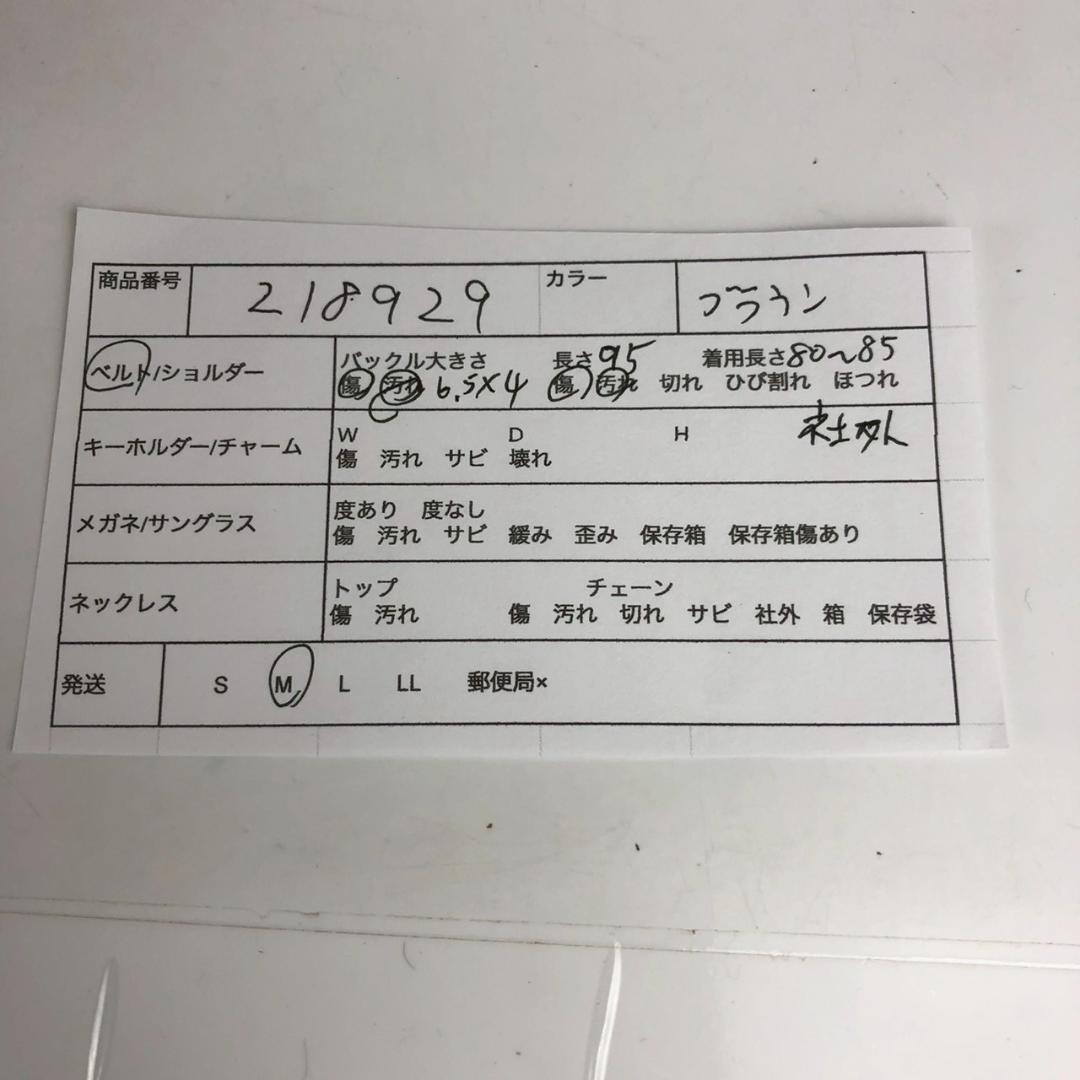 商品番号 218929 カラー ブラウン
ベルト/ショルダー バックル大きさ 長さ 95 着用長さ 80~85
傷 汚れ 6.5×4 傷 汚れ 切れ ひび割れ ほつれ
キーホルダー/チャーム W D H
傷 汚れ サビ 壊れ
メガネ/サングラス 度あり 度なし
傷 汚れ サビ 緩み 歪み 保存箱 保存箱傷あり
ネックレス トップ チェーン
傷 汚れ 傷 汚れ 切れ サビ 社外 箱 保存袋
発送 S M L LL 郵便局×